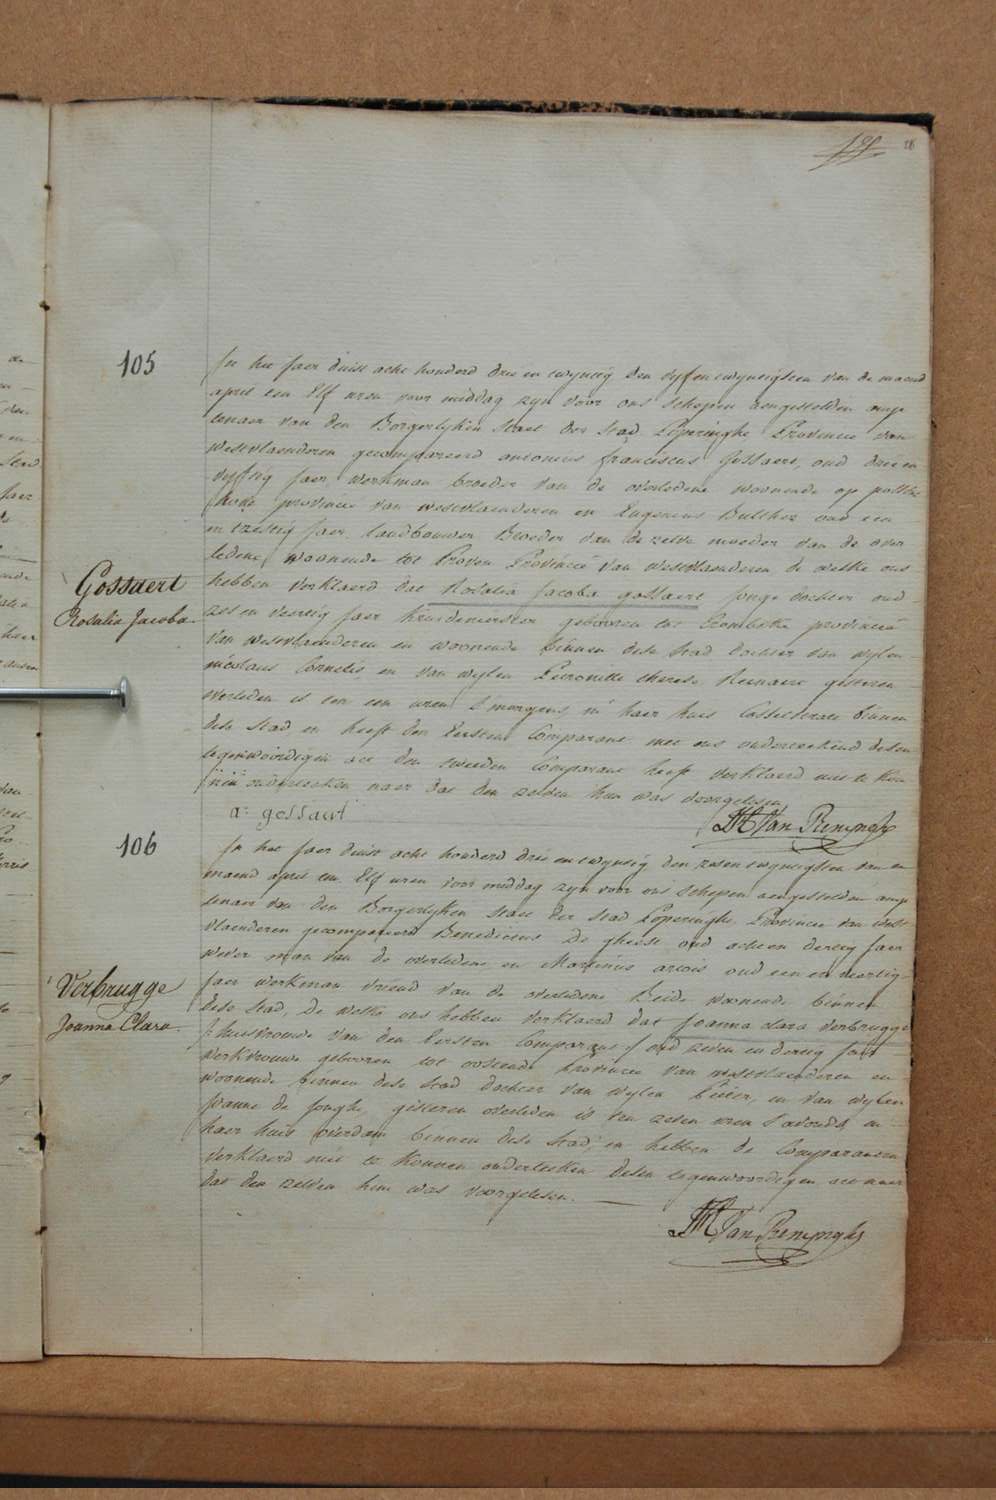 28
105
In het jaer duist acht honderd drie en twyntig den vyf en twyntigsten van de maend
april ten Elf uren voor middag zyn voor ons schepen aengestelden amp
tenaer van den Borgerlyken Staet der stad Poperinghe Provincie van
Westvlaenderen gecompareerd antonius franciscus Gossaert, oud drie en
vyftig jaer werkman broeder van de overledene woonende op
provincie van westvlaenderen en Eugenius Bulthez oud een
en tzestig jaer landbouwer Broeder van de zelve moeder van de over
ledene, woonende tot Proven Provincie van westvlaenderen de welke ons
Gossaert
Rosalia Jacoba
hebben verklaerd dat Rosalia Jacoba gossaert jonge dochter oud
zes en veertig jaer gebooren tot provincie
van westvlaenderen en woonende binnen dese stad dochter van wylen
nicolaus Cornelis en van wylen therese gisteren
overleden is ten een uren s'morgens in haer huis Casselstrate binnen
dese stad en heeft den Eersten Comparant met ons onderteekend desen
tegenwoordigen act den tweeden Comparant heeft verklaerd niet te kon
nen onderteeken naer dat den zelden hun was voorgelesen
a: gossaert
Van Renynghe
106
In het jaer duist acht honderd drie en twyntig den zesen twyntigsten van en
maend april ten Elf uren voor middag zyn voor ons schepen aengestelden amp
tenaer van den Borgerlyken staet der stad Poperinghe, Provincie van West
vlaenderen gecompareerd Benedictus De gheest oud acht en dertig jaer
wever man van de overledene en Martinus arcois oud een en veertig
Verbrugge
Joanna Clara
jaer werkman vriend van de overledene Beide woonende binnen
dese stad, De welke ons hebben verklaerd dat Joanna clara verbrugge
huisvrouwe van den Eersten Comparant oud zeven en dertig jaer
werkvrouwe gebooren tot oostende Provincie van westvlaenderen en
woonende binnen dese stad dochter van wylen Pieter, en van wylen
joanne de Jonghe, gisteren overleden is ten zeven uren s'avonds in
haer huis binnen dese stad, en hebben de Comparanten
verklaerd niet te konnen onderteeken desen tegenwoordigen act naer
dat den zelden hun was voorgelesen.
Van Renynghe